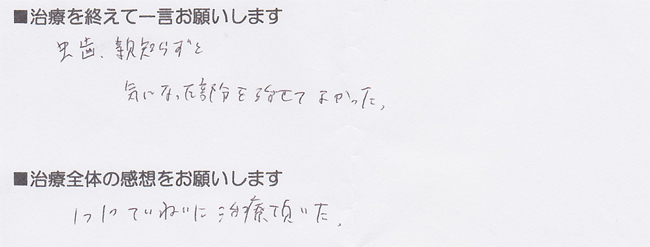 ■治療を終えて一言お願いします
虫歯、親知らずと
気になった部分を治せてよかった。
■治療全体の感想をお願いします
1つ1つていねいに治療頂いた。